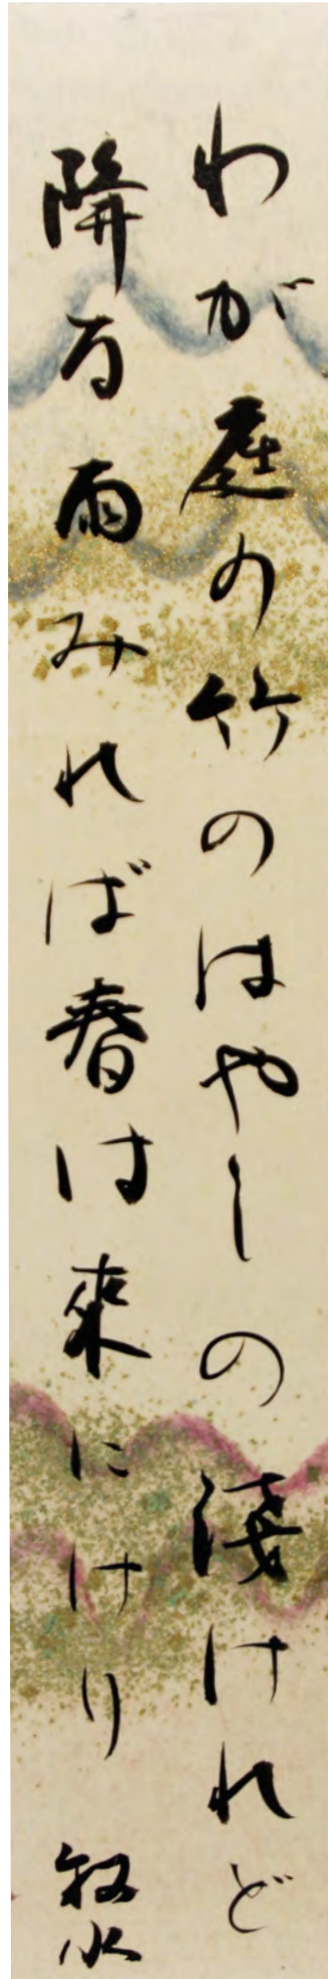 わが庭の竹のはやしの淺けれど
降る雨みれば春は來にけり 牧水